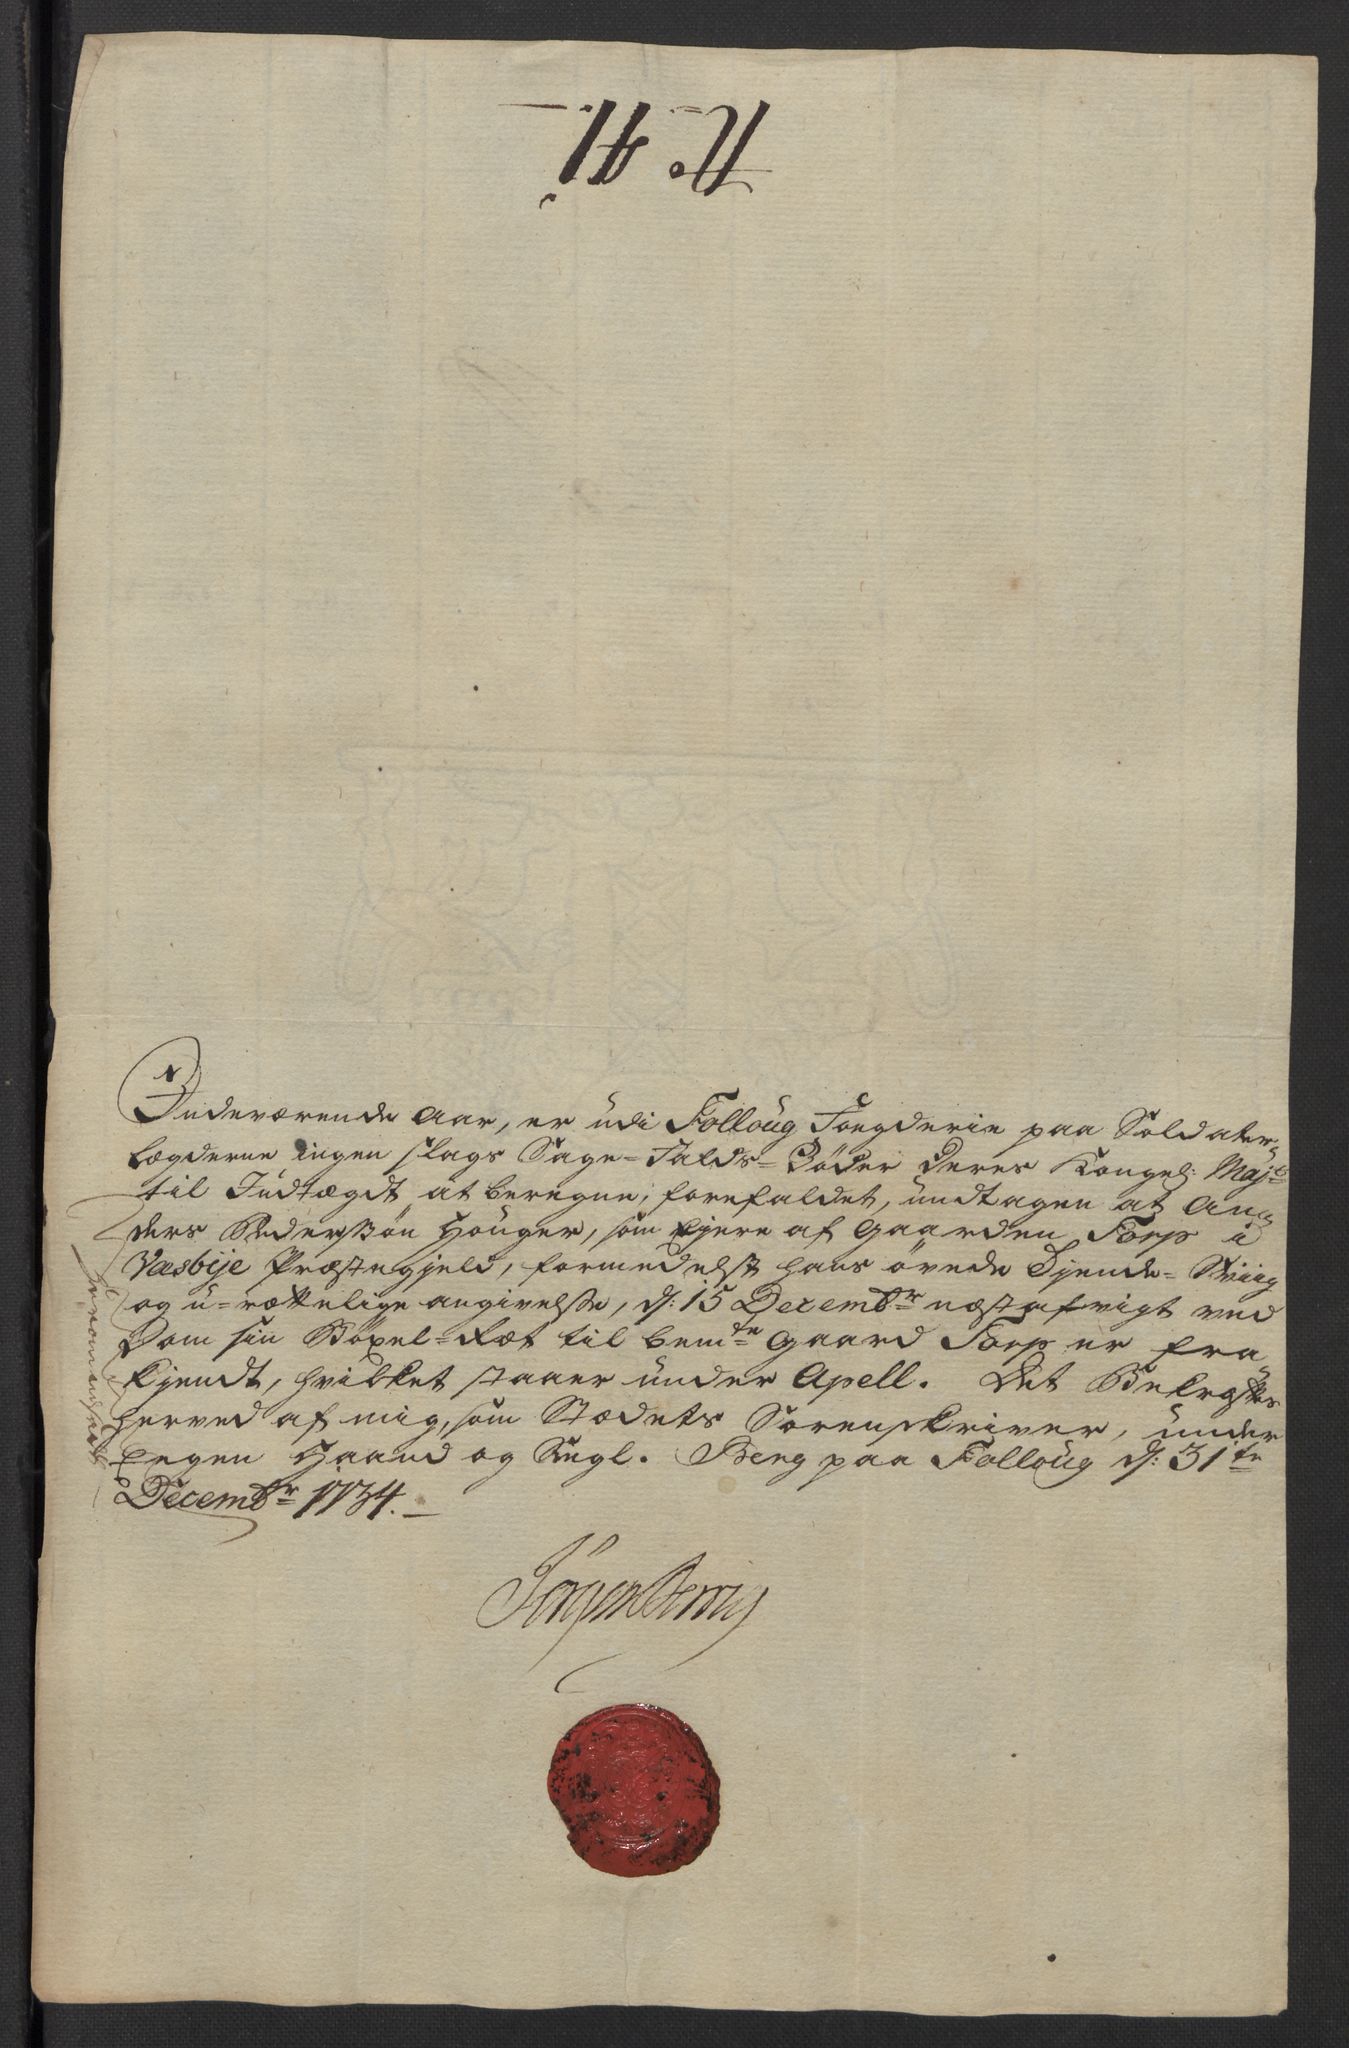 No 41.
Indeværende Aar, er udi Follöug Fongderie paa Soldater-
Lægderne ingen slags Sage-Falds-Böder Deres Kongel: Majts
til Indtægdt at beregne, forefaldet, undtagen at An-
ders Pederssön Houger, som Ejere af Gaarden Torp i
Væsbije Præstegjeld, formedelst hans övede Tjende-Sviig
og u-rættelige angivelsse, d: 15 Decembr næstafvigt ved
Dom sin Böxel-Ræt til bemte Gaard Torp er fra-
kjendt, hvilket staaer under Apell. Det Bekræftes
herved af mig, som Stædets Sorenskriver, under
Eegen Haand og Segl. Berg paa Follöug d: 31te
Decembr 1734.